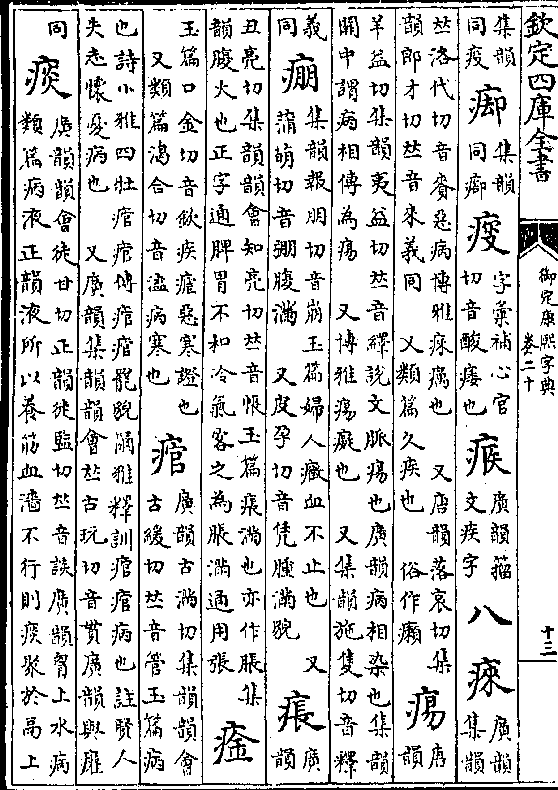 欽定四庫全書
御定康熙字典
卷二十
十三
集韻同疫
𤵺
集韻同𤸎
痠
字彙補心官切音酸痿也
𤶎
廣韻籀文疾字
八
㾢
廣韻集韻
𠀤洛代切音賚惡病博雅㾢癘也 又唐韻落哀切集
韻郎才切𠀤音來義同 又類篇久疾也 俗作癩
㾾
唐韻
羊益切集韻夷益切𠀤音繹說文脈瘍也廣韻病相染也集韻
關中謂病相傳為瘍 又博雅瘍癡也 又集韻施隻切音釋
義同
㔙
集韻報朋切音崩玉篇婦人癥血不止也 又
蒲萌切音弸腹滿 又皮孕切音凭腫滿貌
痮
廣韻
丑亮切集韻韻會知亮切𠀤音悵玉篇痮滿也亦作脹集
韻腹大也正字通脾胃不和冷氣客之為脹滿通用張
㾣
玉篇口金切音欽疾㾣惡寒證也
又類篇渴合切音溘病寒也
痯
廣韻古滿切集韻韻會
古緩切𠀤音管玉篇病
也詩小雅四牡痯痯傳痯痯罷貌爾雅釋訓痯痯病也註賢人
失志懷憂病也 又廣韻集韻韻會𠀤古玩切音貫廣韻與𤸫
同
痰
廣韻韻會徒甘切正韻徒監切𠀤音談廣韻胷上水病
類篇病液正韻液所以養筋血濇不行則痰聚於鬲上